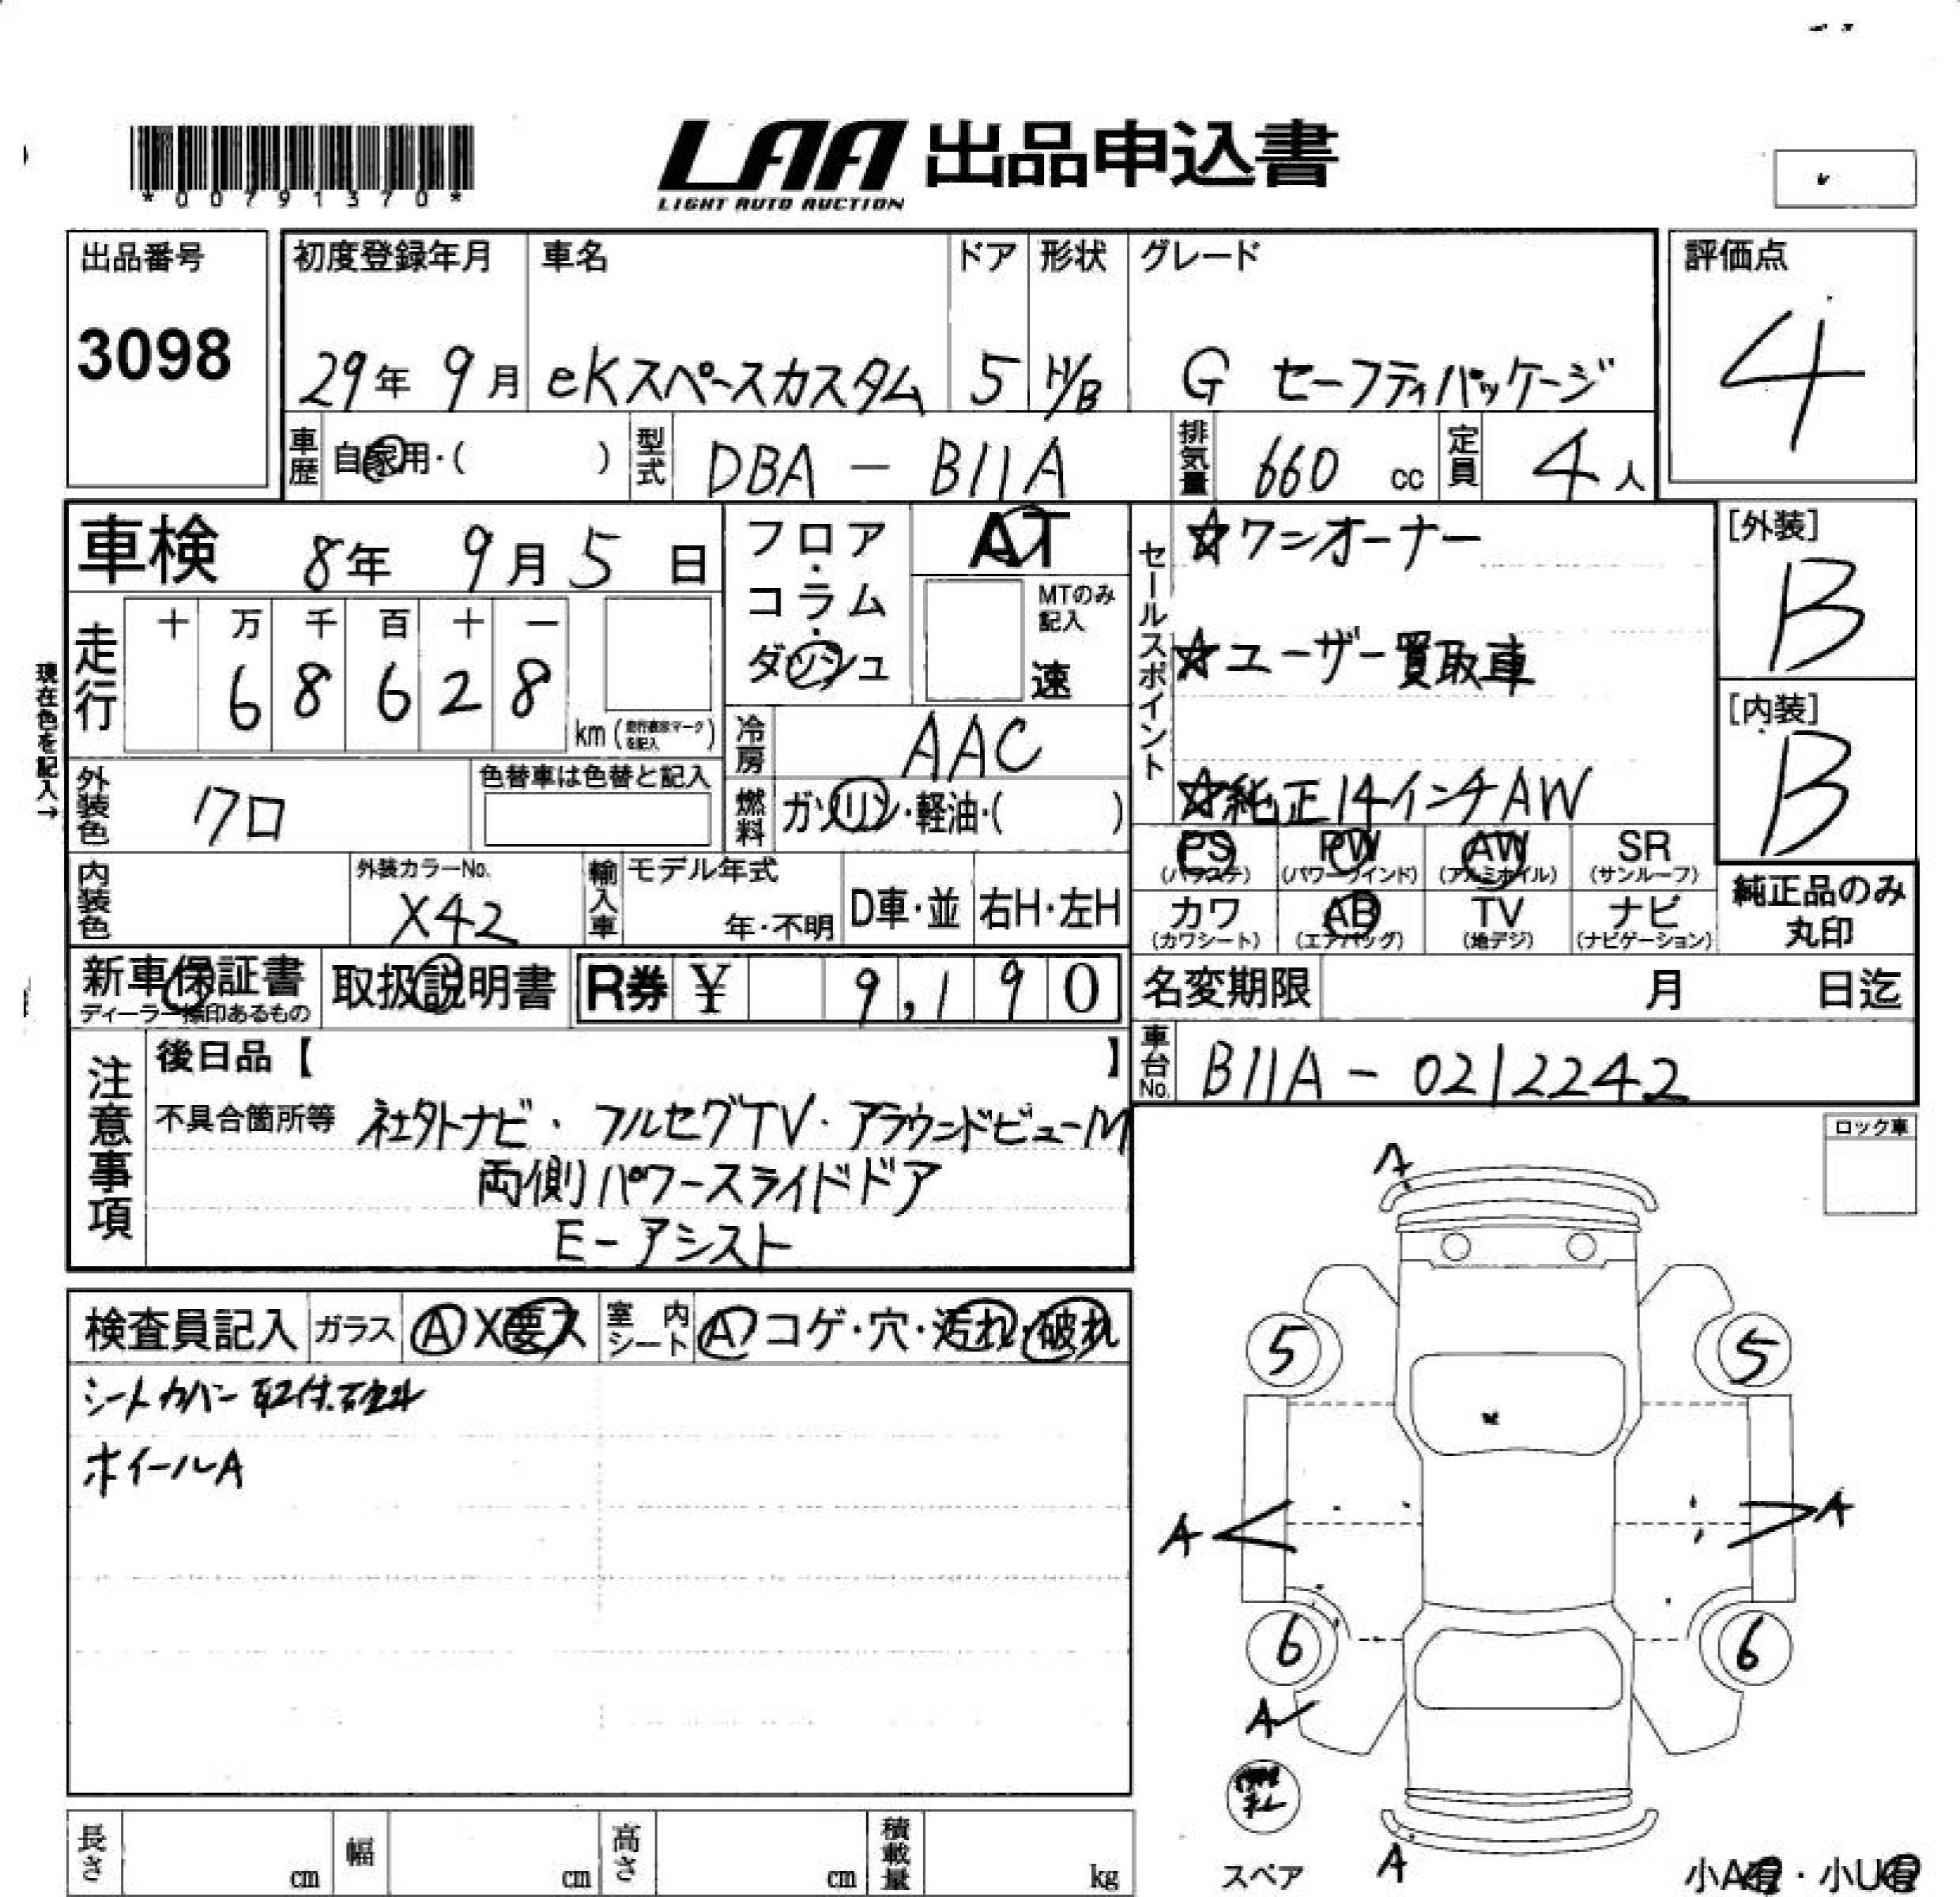 *00791370*
LAA 出品申込書
LIGHT AUTO AUCTION
出品番号
3098
初度登録年月 車名 ドア 形状 グレード
29年 9月 eKスペースカスタム 5 H/B G セーフティパッケージ
評価点
4
車歴 自家用・( ) 型式 DBA - B11A 排気量 660 cc 定員 4人
車検 8年 9月 5日
フロア・コラム・ダッシュ
AT
MTのみ記入
速
セールスポイント
☆ワンオーナー
☆ユーザー買取車
☆純正14インチAW
[外装]
B
[内装]
B
現在色を記入→
走行 十 万 千 百 十 一
6 8 6 2 8
km
冷房 AAC
外装色 クロ
色替車は色替と記入
燃料 ガソリン・軽油・( )
PS (パワステ) PW (パワーウインド) AW (アルミホイル) SR (サンルーフ)
カワ (カワシート) AB (エアバッグ) TV (地デジ) ナビ (ナビゲーション)
純正品のみ丸印
内装色
外装カラーNo.
X42
輸入車 モデル年式
年・不明 D車・並 右H・左H
新車保証書
ディーラー捺印あるもの
取扱説明書 R券 ¥ 9,190
名変期限 月 日迄
車台No. B11A - 0212242
注意事項
後日品【 】
不具合箇所等 社外ナビ・フルセグTV・アラウンドビューM
両側パワースライドドア
E-アシスト
ロック車
検査員記入 ガラス A X要ス 室内シート A コゲ・穴・汚れ・破れ
シートカバー取付
ホイールA
A
5 5
A A
6 6
A
スペア
A
小A有・小U有
長さ cm 幅 cm 高さ cm 積載量 kg